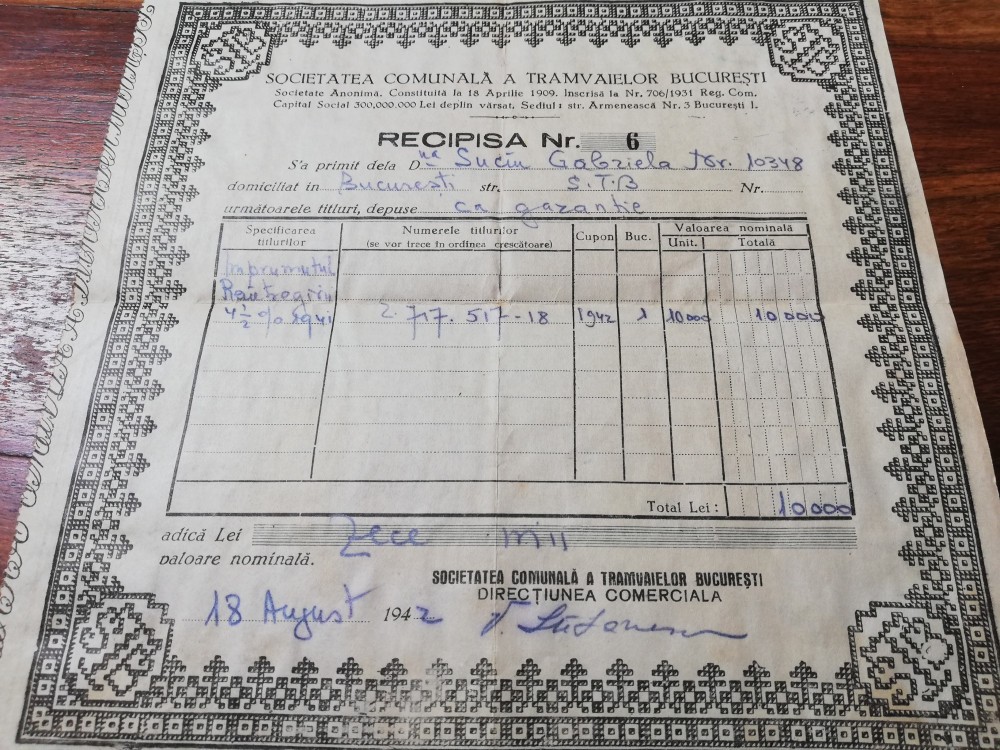 SOCIETATEA COMUNALĂ A TRAMVAIELOR BUCUREȘTI
Societate Anonimă, Constituită la 18 Aprilie 1909. Inscrisă la Nr. 706/1931 Reg. Com.
Capital Social 300,000.000 Lei deplin vărsat, Sediul: str. Armenească Nr. 3 București I.
RECIPISA Nr. 6
S'a primit dela D na Suciu Gabriela Nr. 10348
domiciliat in București str. S.T.B Nr.
următoarele titluri, depuse ca garanție
Specificarea titlurilor Numerele titlurilor (se vor trece în ordinea crescătoare) Cupon Buc. Valoarea nominală Unit. Totală
Imprumutul
Reîntregirii
4 1/2 % 1941 2.717.517-18 1942 1 10000 10.000
Total Lei: 10000
adică Lei Zece mii
valoare nominală.
SOCIETATEA COMUNALĂ A TRAMVAIELOR BUCUREȘTI
DIRECȚIUNEA COMERCIALA
18 August 1942